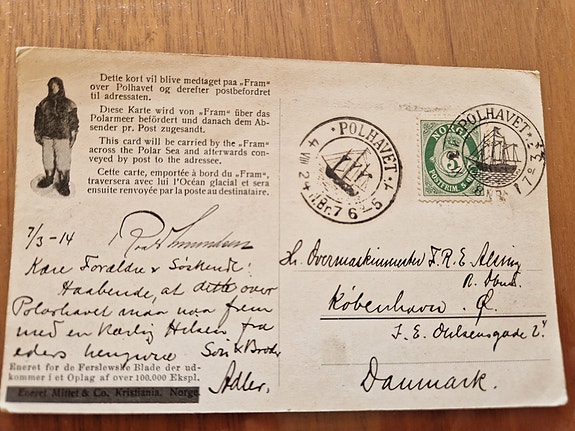 Dette kort vil blive medtaget paa „Fram“
over Polhavet og derefter postbefordret
til adressaten.
Diese Karte wird von „Fram“ über das
Polarmeer befördert und danach dem Ab-
sender pr. Post zugesandt.
This card will be carried by the „Fram“
across the Polar Sea and afterwards con-
veyed by post to the adressee.
Cette carte, emportée à bord du „Fram“,
traversera avec lui l'Océan glacial et sera
ensuite renvoyée par la poste au destinataire.
7/3-14
Roald Amundsen
Kære Forældre & Søskende!
Haabende, at dette over
Polarhavet maa naa frem
med en kærlig Hilsen fra
eders hengivne Søn & Broder
Adler.
Eneret for de Ferslewske Blade der ud-
kommer i et Oplag af over 100.000 Ekspl.
Eneret Mittet & Co. Kristiania. Norge.
POLHAVET
NORGE
5
POSTFRIM.
POLHAVET
Hr. Overmaskinmester F. R. E.
København. Ø.
Danmark.